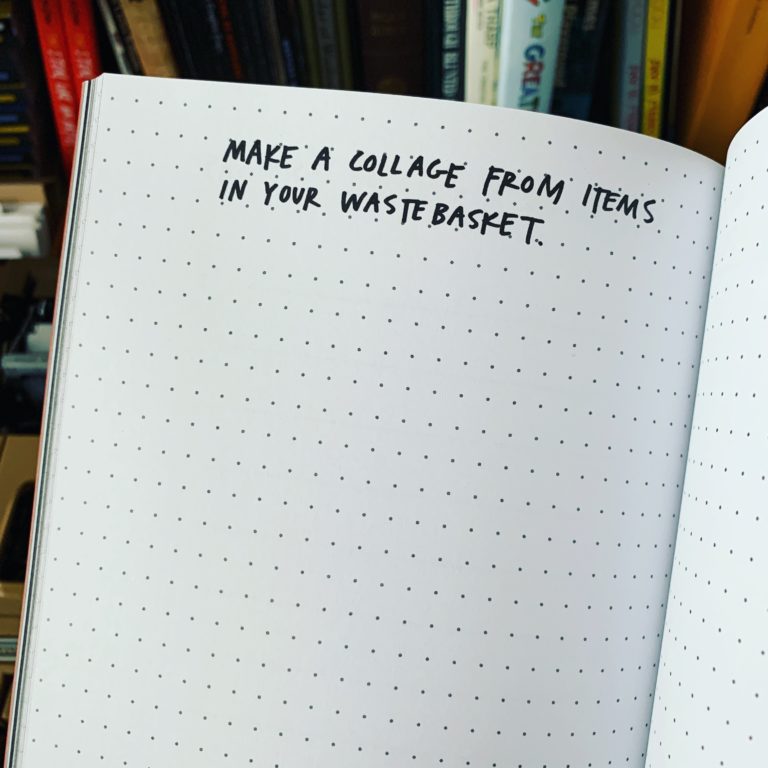 THE GREAT
MAKE A COLLAGE FROM ITEMS
IN YOUR WASTEBASKET.